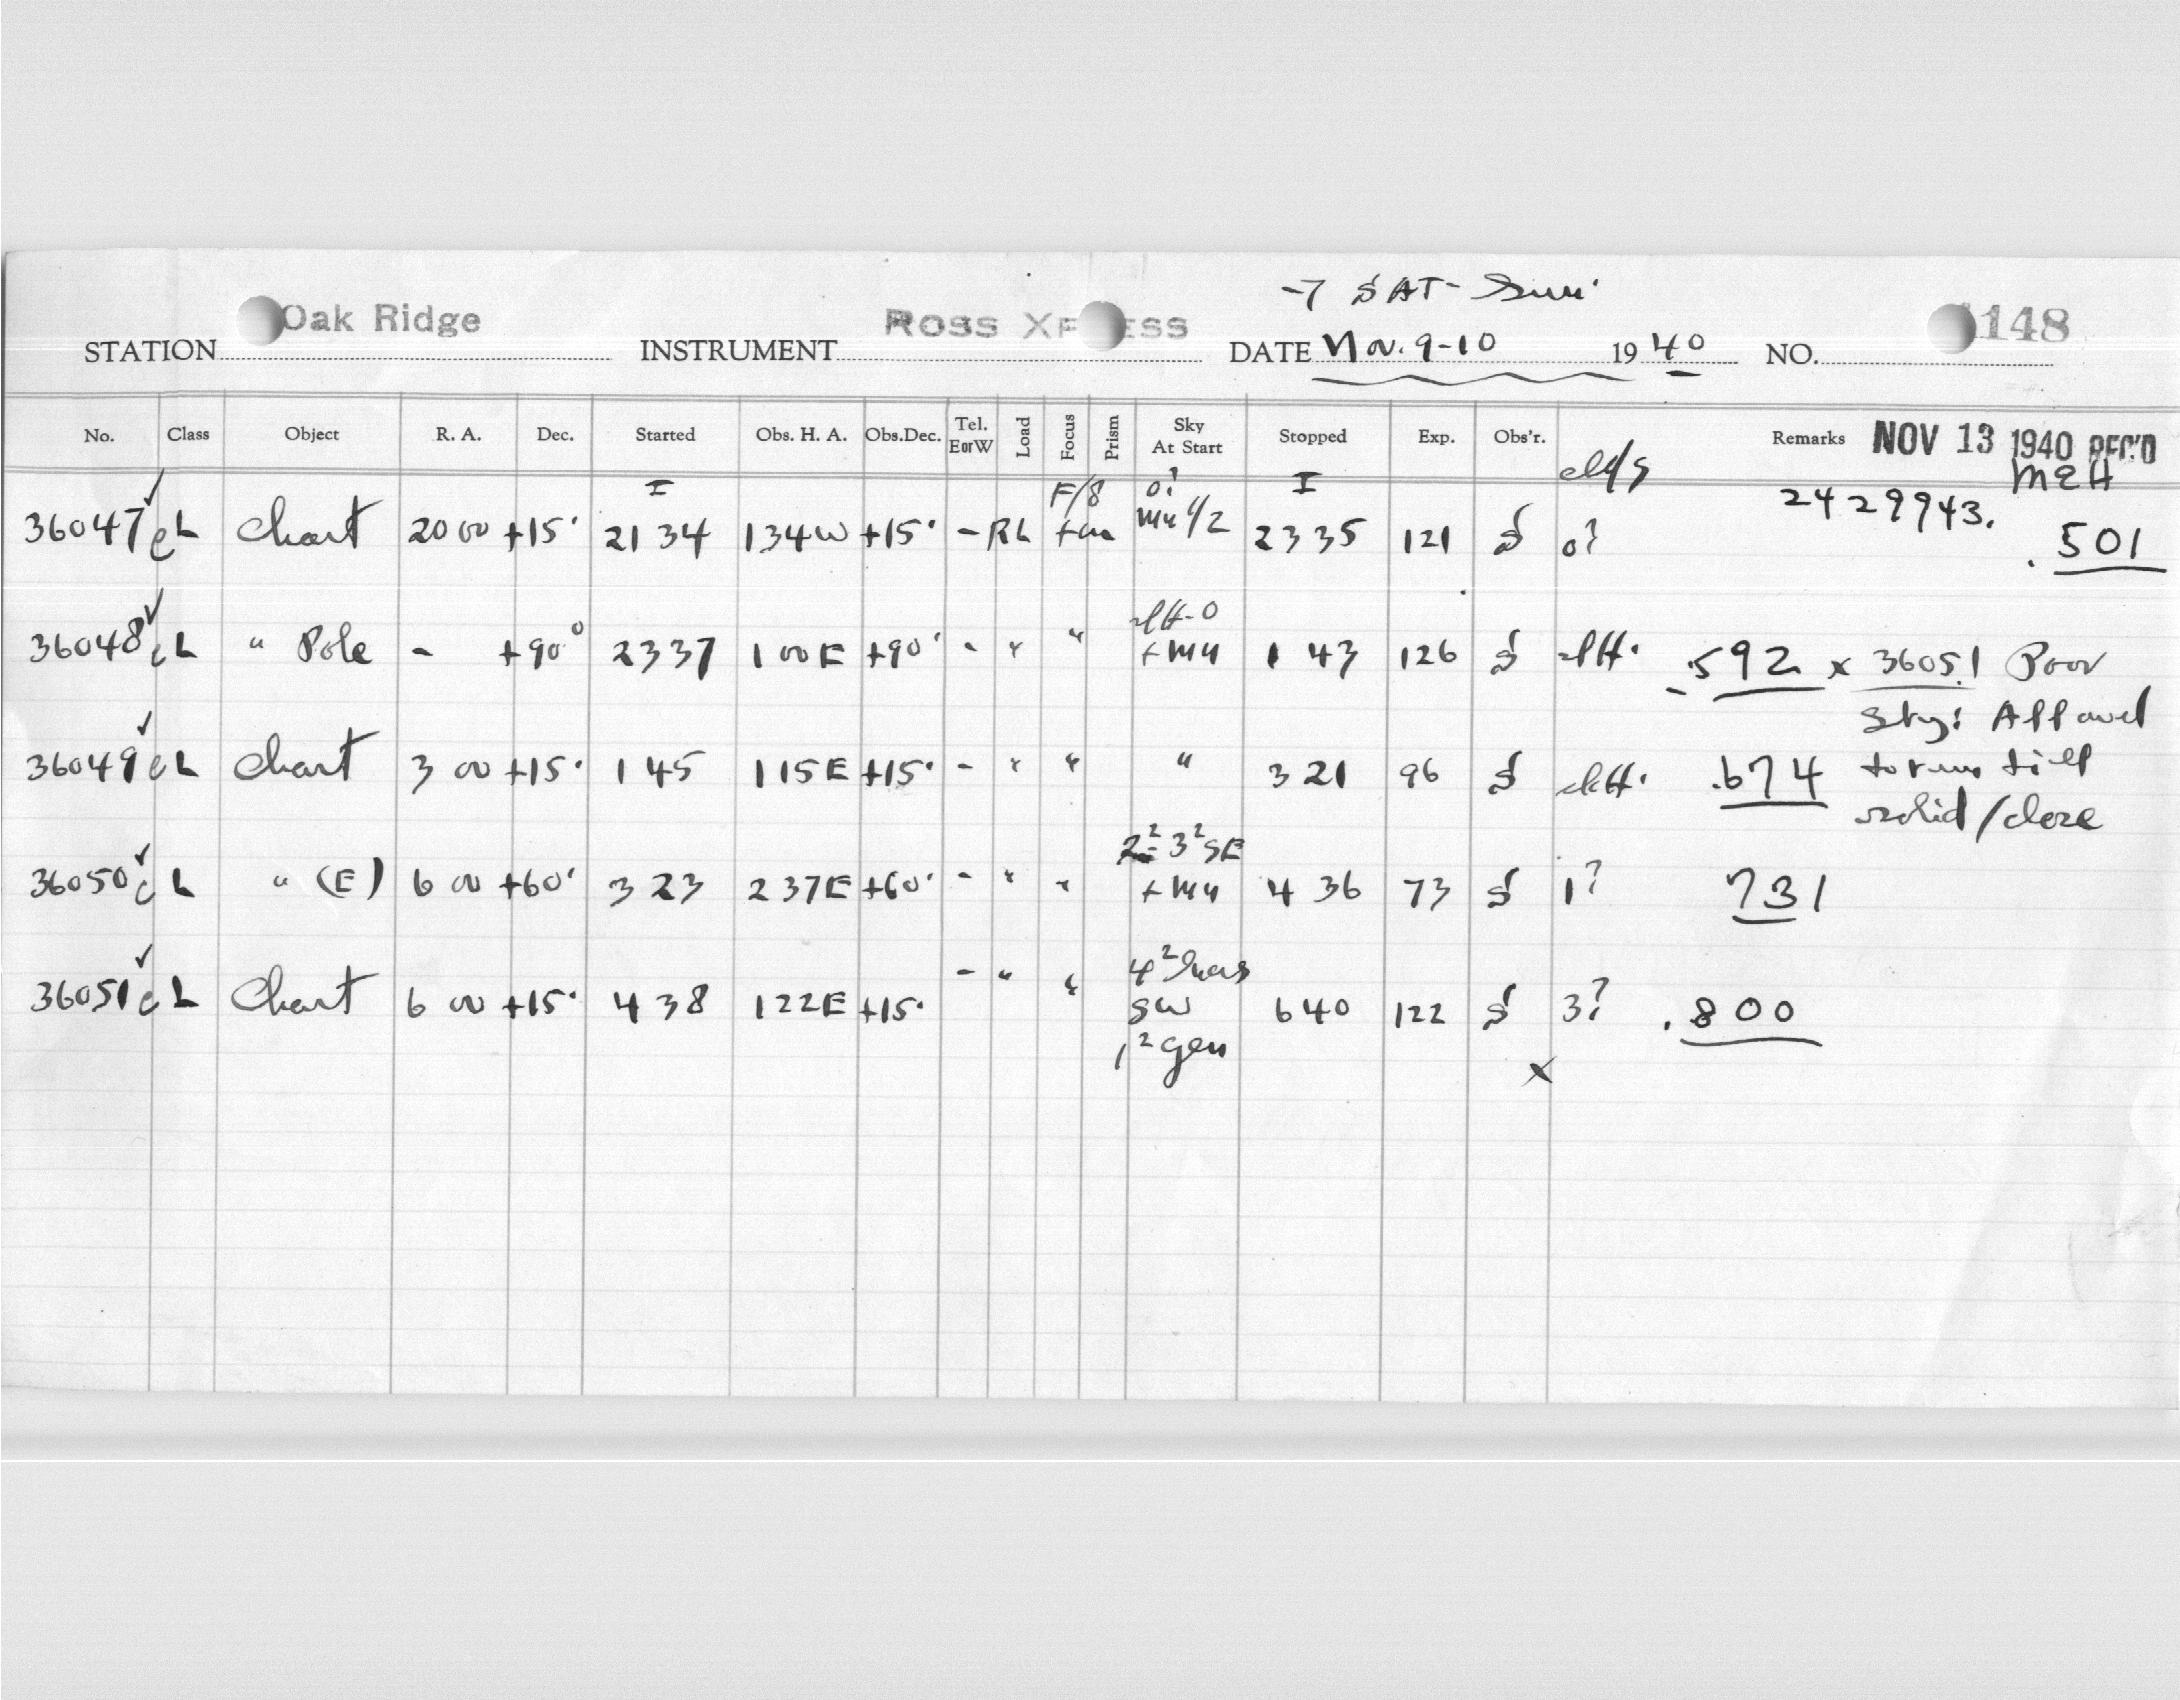 → SAT-Sun.
STATION Oak Ridge INSTRUMENT ROSS XPRESS DATE Nov. 9-10 1940 NO. 148
No. Class Object R. A. Dec. Started Obs. H. A. Obs.Dec. Tel. E or W Load Focus Prism Sky At Start Stopped Exp. Obs'r. Remarks NOV 13 1940 REC'D
MEH
36047 cL Chart 20 00 +15° I 21 34 134W +15° - RL F/8 2335 121 0? 2429943.
.501
36048 cL " Pole - +90° 2337 1 00E +90° - " " 1 43 126 .592 x 36051 Poor
Sky: Allowed
36049 cL Chart 3 00 +15° 1 45 115E +15° - " " " 3 21 96 .674 to run till
solid/close
36050 cL " (E) 6 00 +60° 3 23 237E +60° - " " 3² SE 4 36 73 1? 731
36051 cL Chart 6 00 +15° 4 38 122E +15° - " " 4² SW 1² gen 6 40 122 3? .800
x